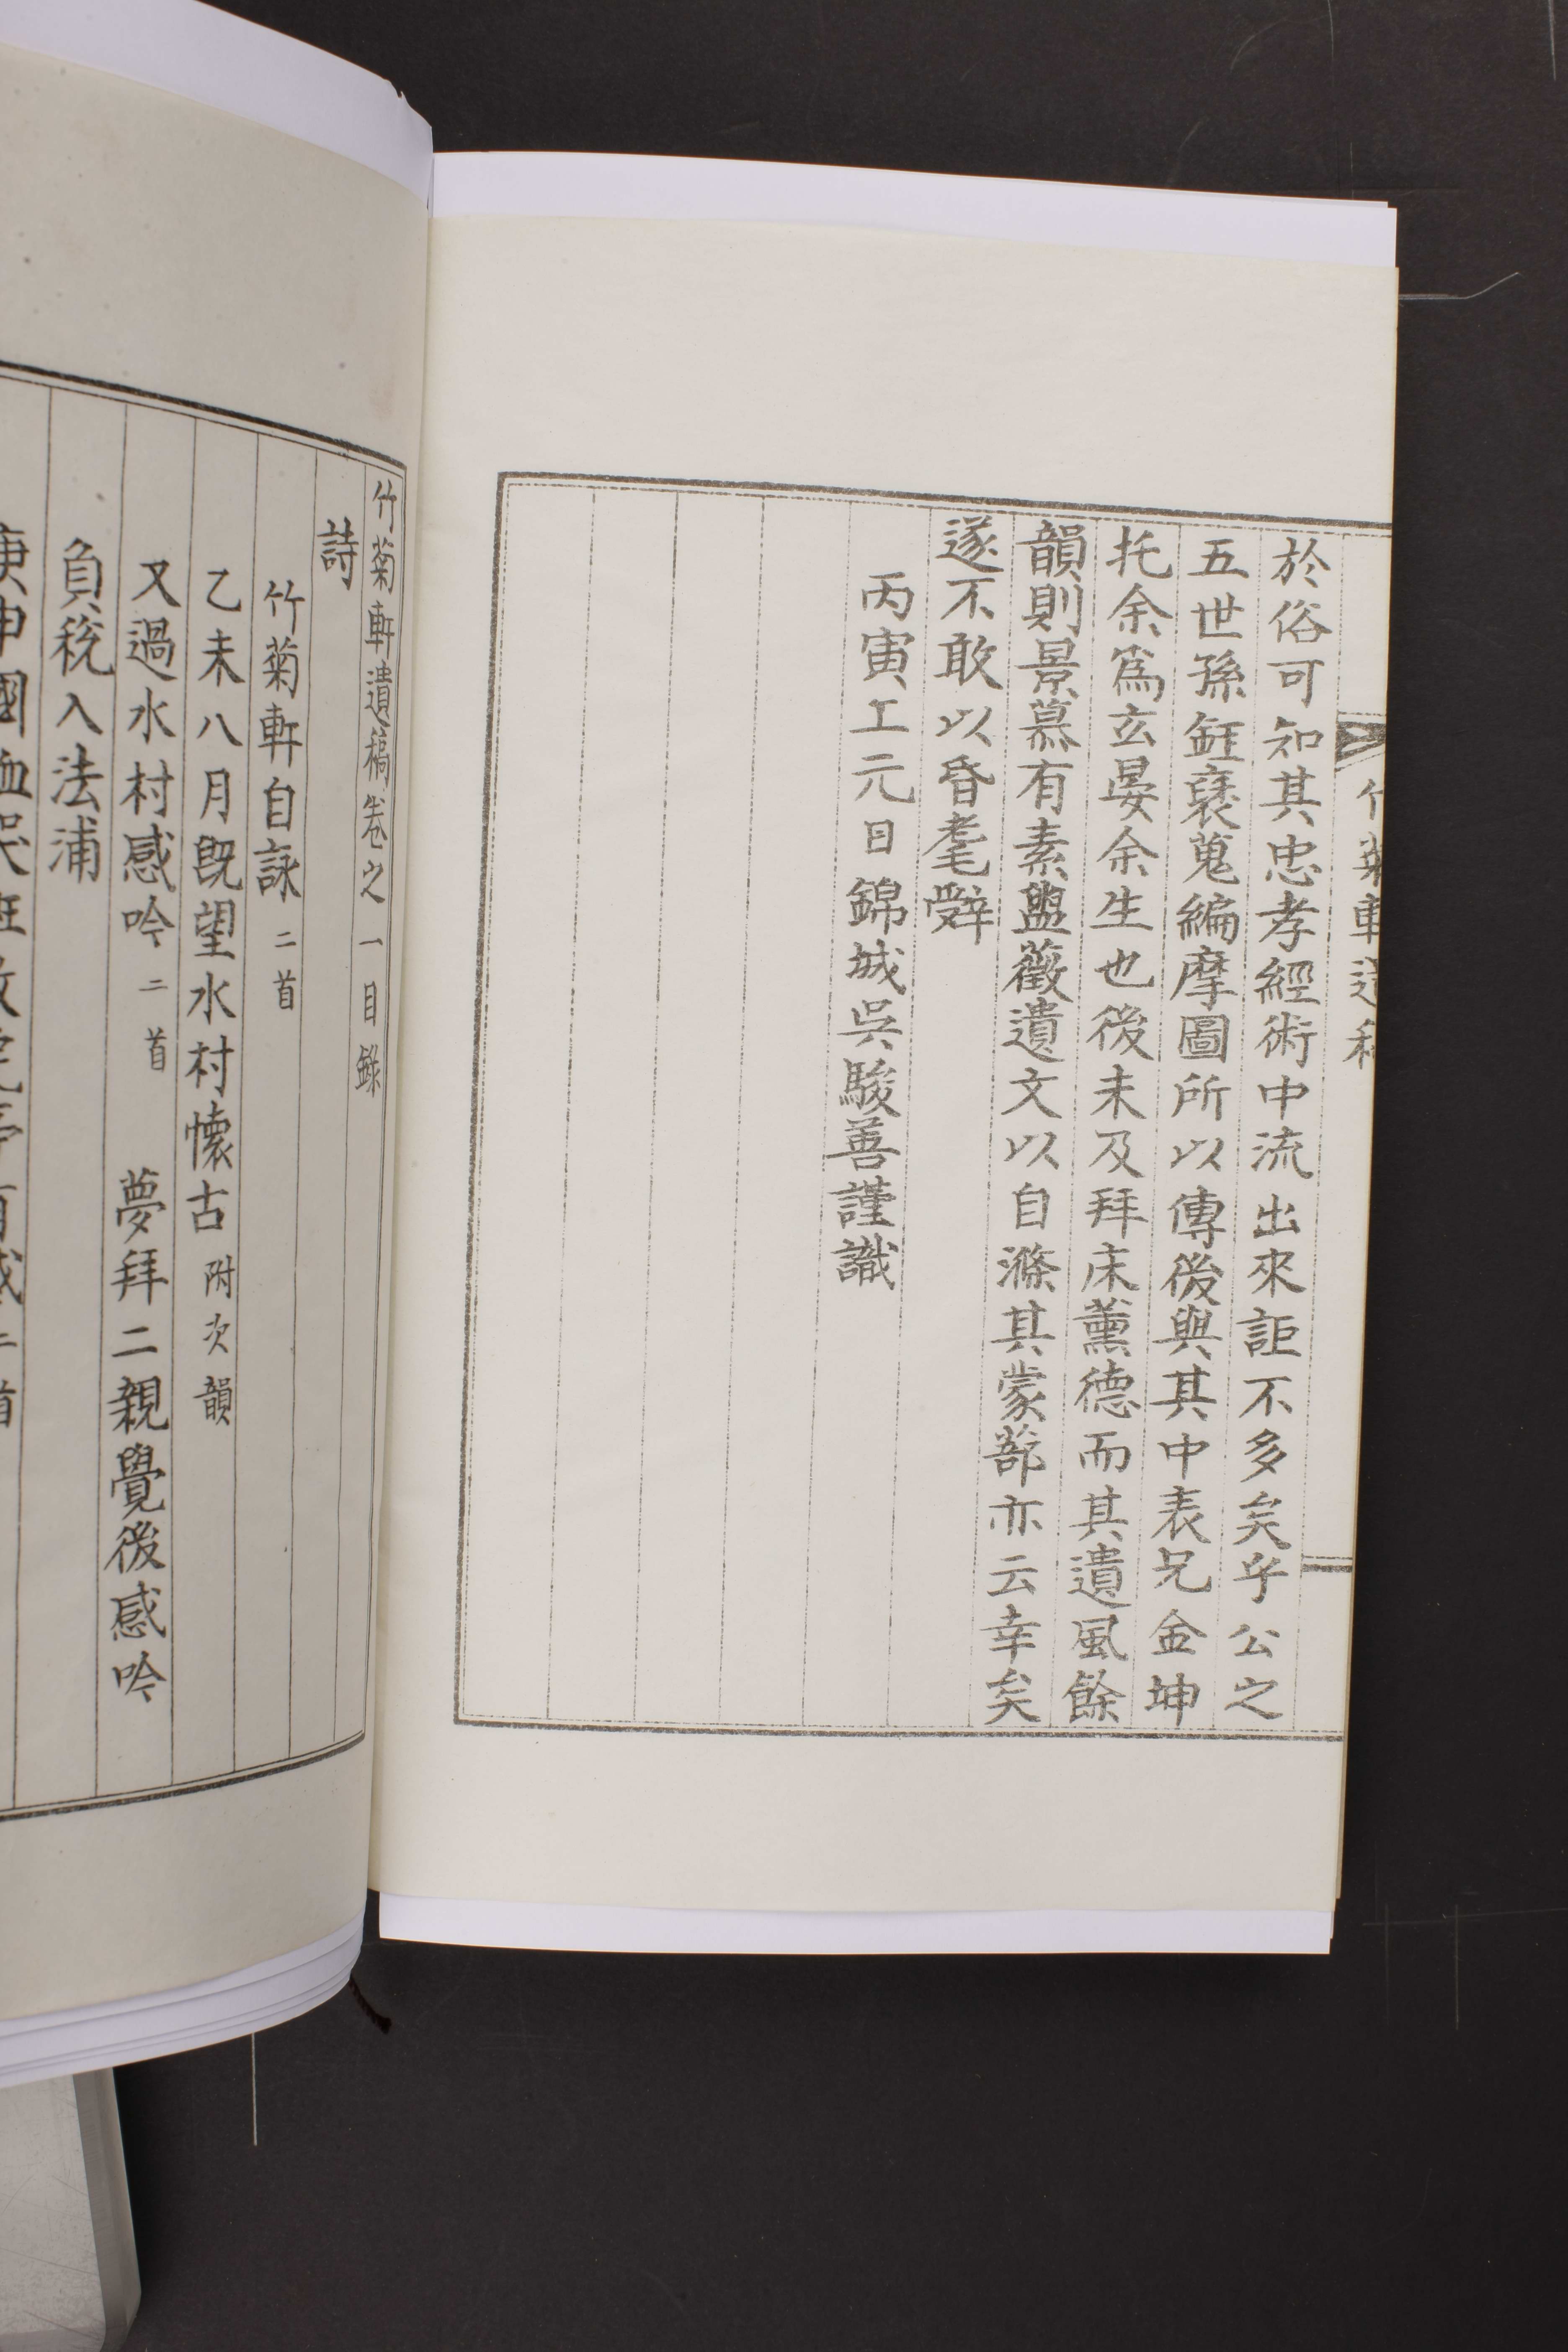 竹菊軒遺稿
於俗可知其忠孝經術中流出來詎不多矣乎公之
五世孫鉦褎蒐編摩圖所以傳後與其中表兄金坤
托余爲玄晏余生也後未及拜床薰德而其遺風餘
韻則景慕有素盥薇遺文以自滌其蒙蔀亦云幸矣
遂不敢以昏耄辭
丙寅上元日錦城吳駿善謹識
竹菊軒遺稿卷之一目錄
詩
竹菊軒自詠 二首
乙未八月旣望水村懷古 附次韻
又過水村感吟 二首 夢拜二親覺後感吟
負稅入法浦
庚申國恤